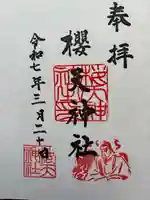 奉拝
櫻天神社
令和七年三月二十日